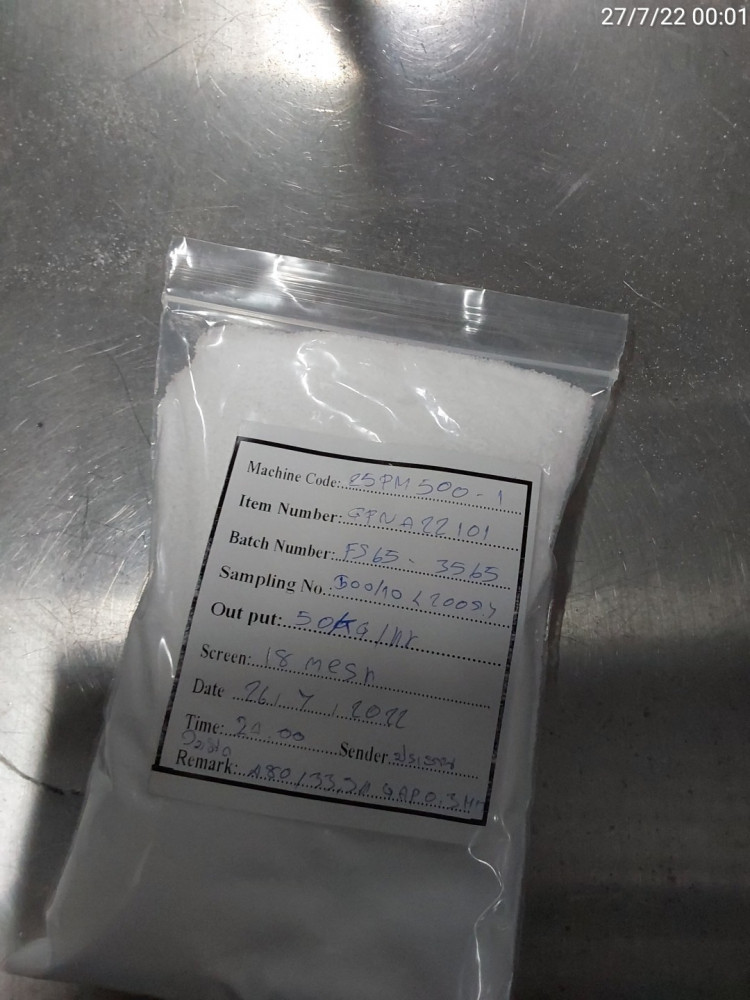 27/7/22 00:01
Machine Code: 25PM 500-1
Item Number: GPNA22101
Batch Number: FS65-3565
Sampling No. 500/10
Out put: 50KG/Hr
Screen: 18 mesh
Date 26, 7, 2022
Time: 20.00 Sender
Remark: A80/33.3A GAP 0.3MM